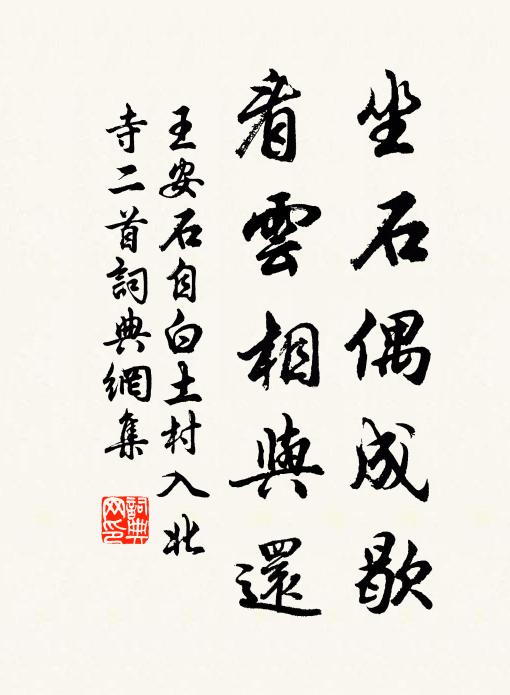 坐石偶成歇
看雲相與還
王安石自白土村入北
寺二首詞典網集
詞典網印